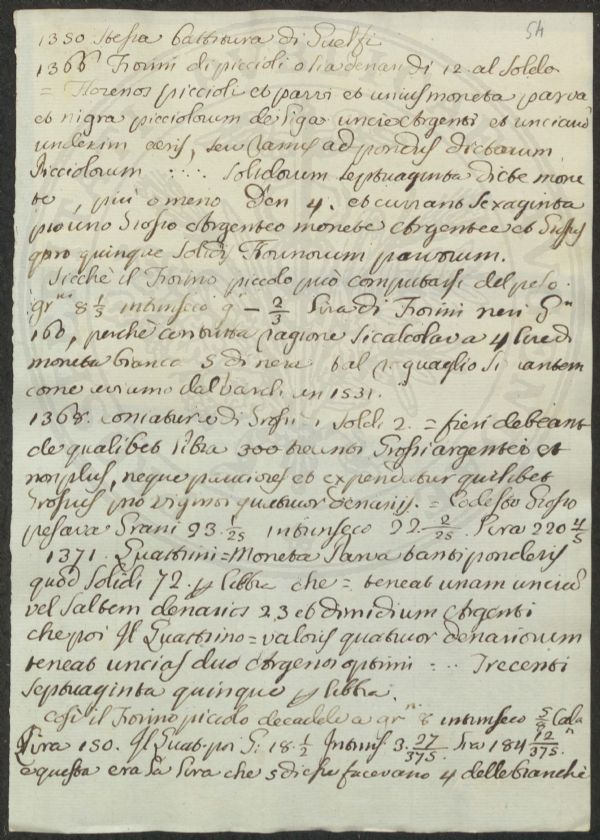 54
1350 Stessa battitura di Guelfi
1366 Fiorini di piccioli o sia denari di 12 al Soldo
= Florenos piccioli et parvi et unius moneta parva
et nigra picciolorum de liga uncie Argenti et unciarum
undecim aeris, seu ramis ad pondus dictarum
Picciolorum .... Solidorum septuaginta dicte mone
te, più o meno Den 4. et currant Sexaginta
pro uno Grosso Argenteo monete Argentee et Grossus
pro quinque Solidis Florinorum parvorum.
Sicchè il Fiorino piccolo può computarsi del peso
gr.ni 8 1/3 intrinseco g.o - 2/3 Lira di Fiorini neri G.n
160, perchè con tutta ragione si calcolava 4 Lire di
moneta bianca 5 di nera tal ragguaglio si
come dal in 1531.
1368. coniatura di Grossi Soldi 2. = fieri debeant
de qualibet libra 300 trecenti Grossi argentei et
non plus, neque pauciores et expendatur quilibet
Grossus pro viginti quatuor denariis. = Codesto Grosso
pesava Grani 23. 1/25 intrinseco 22. 2/25. Lira 220 4/5
1371. Quattrini = Moneta Parva tanti ponderis
quod Solidi 72. p libbra che = teneat unam unciam
vel saltem denarios 23 et dimidium Argenti
che poi Il Quattrino = valoris quatuor denariorum
teneat uncias duo Argenti optimi ... Trecenti
septuaginta quinque p libbra.
Così il Fiorino piccolo decadde a gr.ni 8 intrinseco 5/8
Lira 150. Il Quat. poi G. 18. 1/2 Intrins. 3. 27/375. Lira 184 12/375.
e questa era la Lira che 5 di esse facevano 4 delle bianche